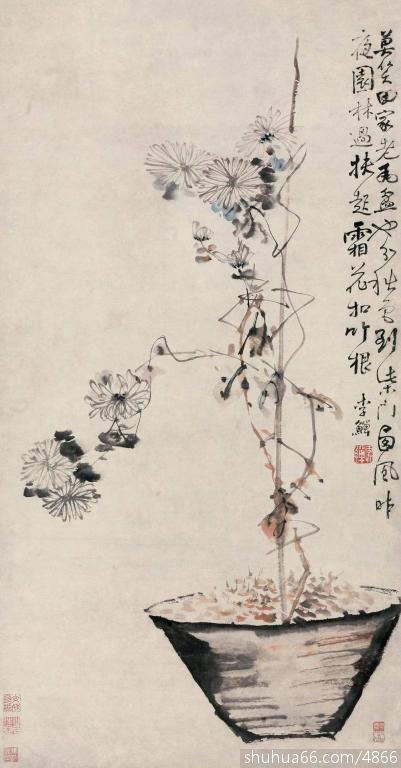 莫笑田家老瓦盆也分秋色到柴門西風昨
夜園林過扶起霜花扣竹根
李鱓
shuhua66.com/4866